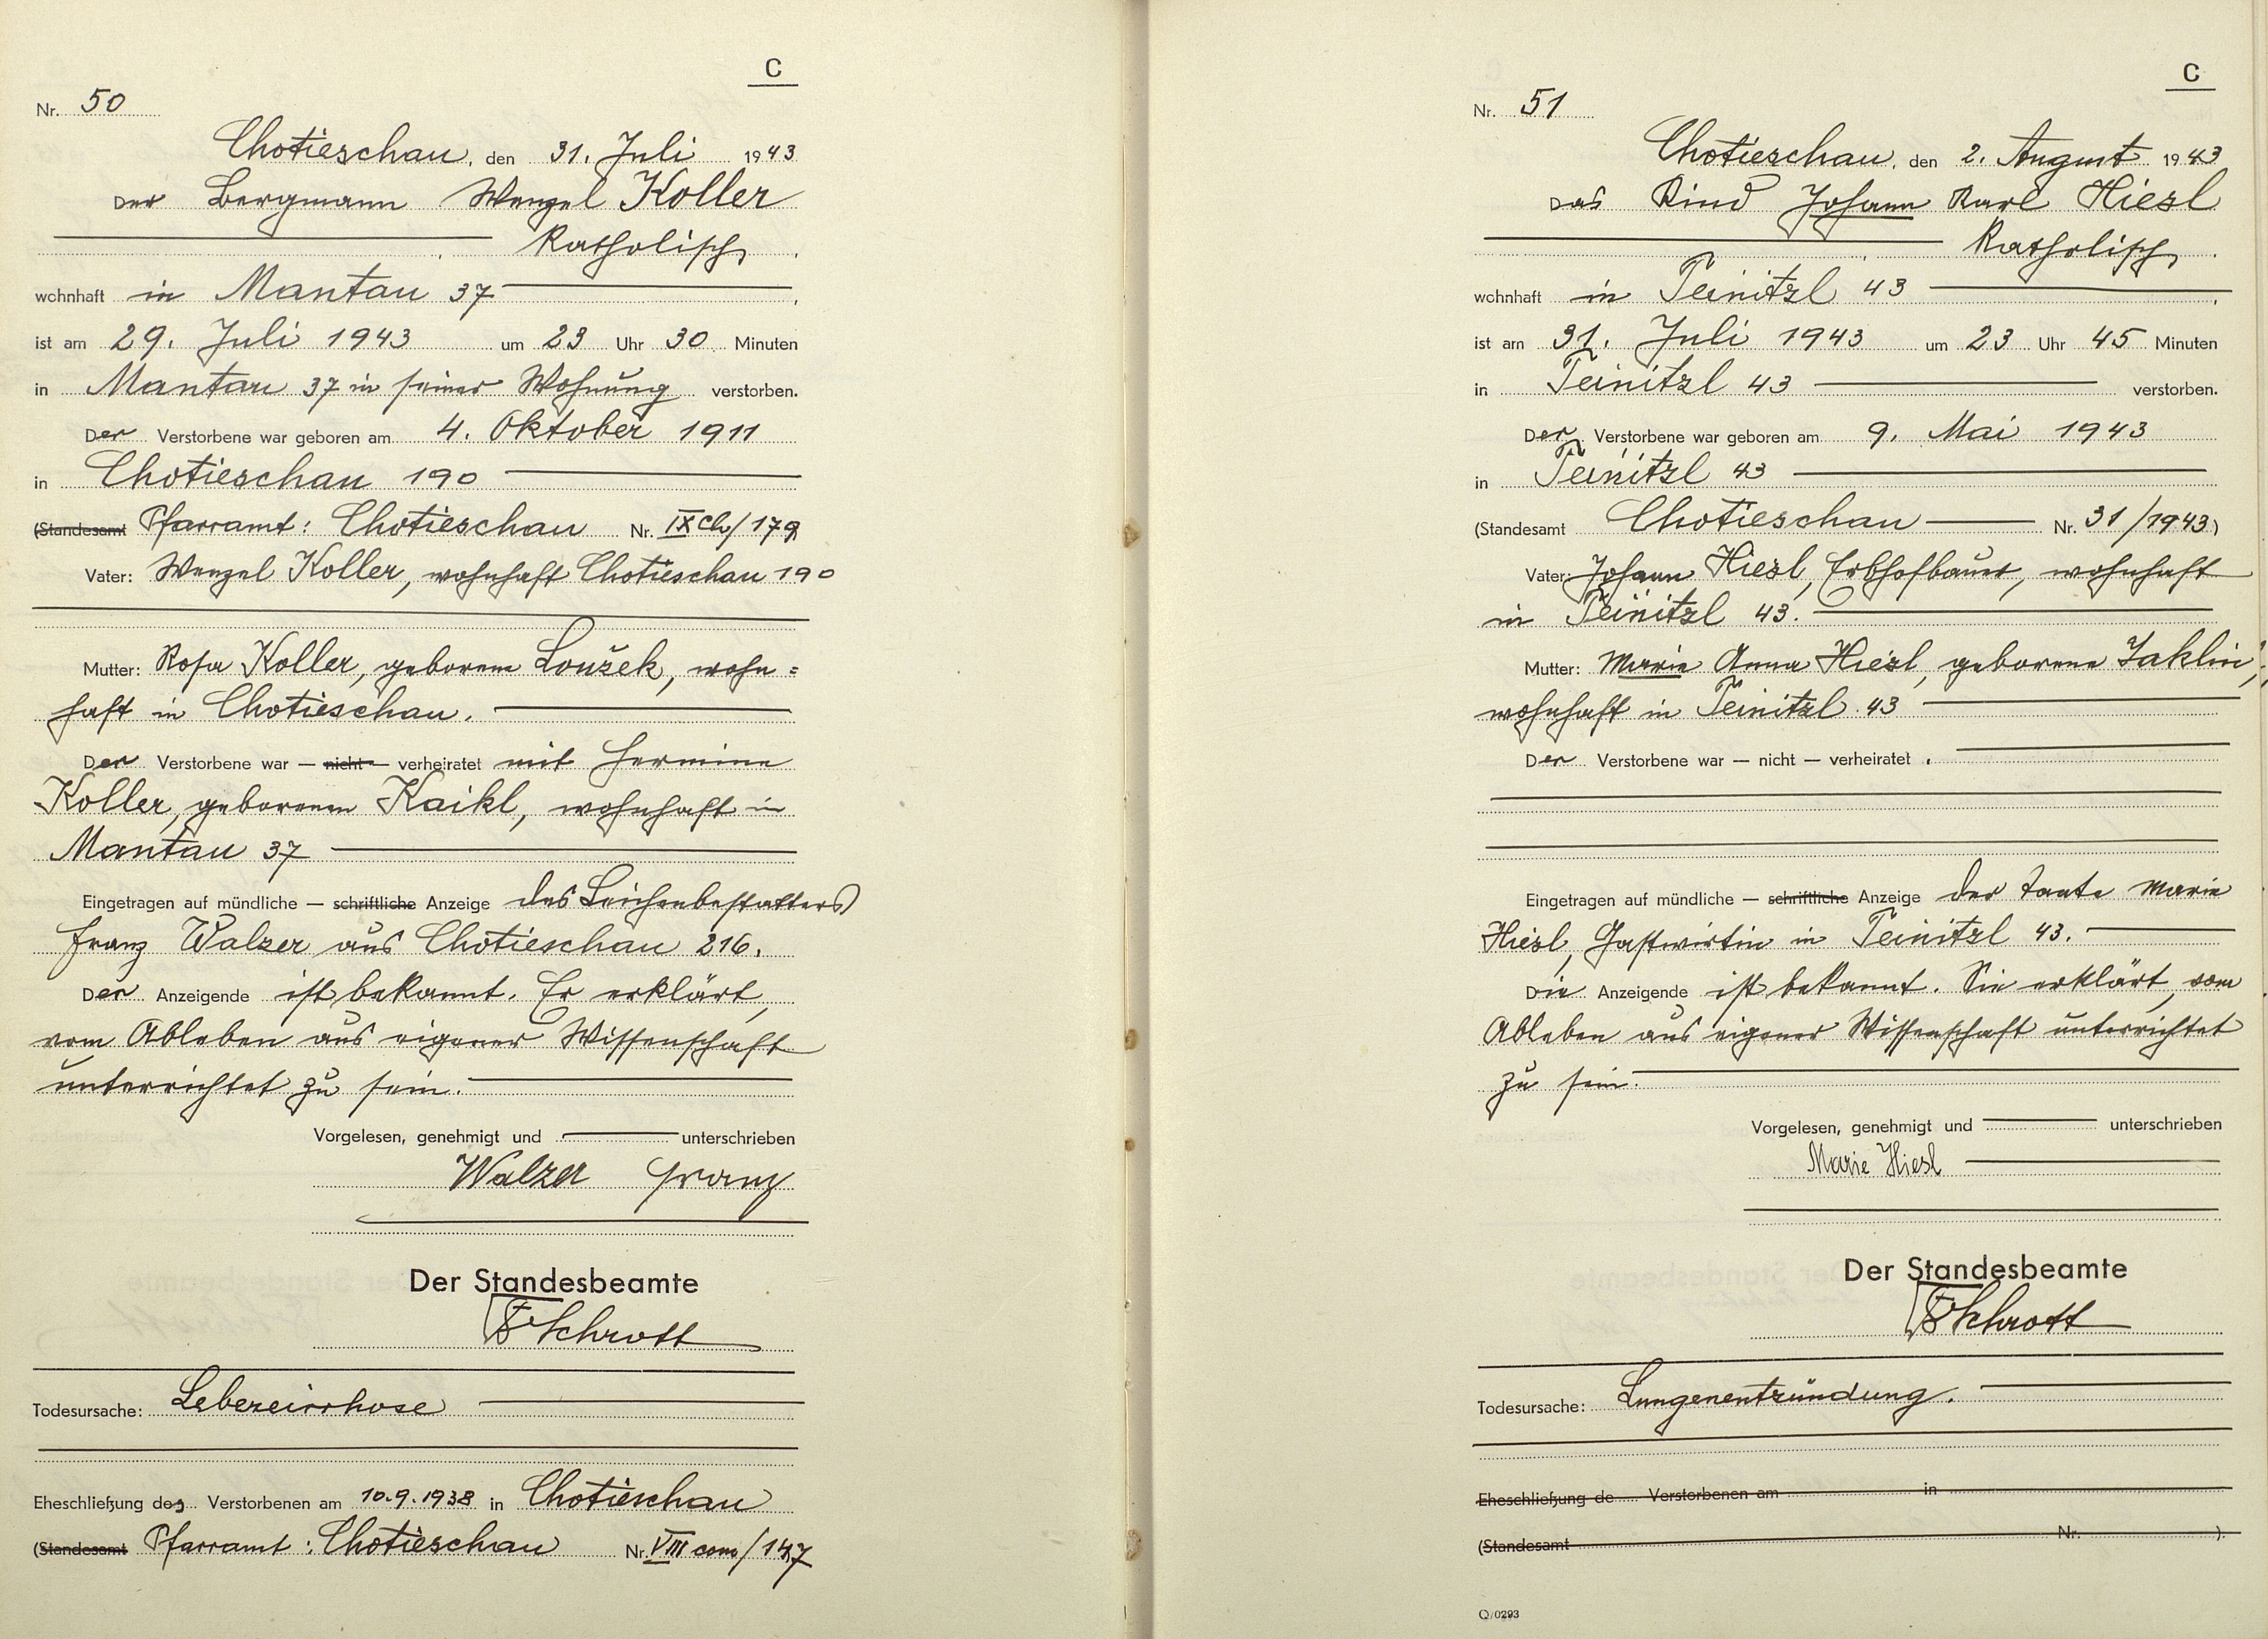 C
Nr. 50
Chotieschau, den 31. Juli 1943
Der Bergmann Wenzel Koller
katholisch,
wohnhaft in Mantau 37,
ist am 29. Juli 1943 um 23 Uhr 30 Minuten
in Mantau 37 in seiner Wohnung verstorben.
Der Verstorbene war geboren am 4. Oktober 1911
in Chotieschau 190
(Standesamt Pfarramt: Chotieschau Nr. IX Ch/179
Vater: Wenzel Koller, wohnhaft Chotieschau 190
Mutter: Rosa Koller, geborene Loužek, wohn=
haft in Chotieschau.
Der Verstorbene war — nicht — verheiratet mit Hermine
Koller, geborenen Kaikl, wohnhaft in
Mantau 37
Eingetragen auf mündliche — schriftliche Anzeige des Leichenbestatters
Franz Walzer aus Chotieschau 216.
Der Anzeigende ist bekannt. Er erklärt,
vom Ableben aus eigener Wissenschaft
unterrichtet zu sein.
Vorgelesen, genehmigt und unterschrieben
Walzer Franz
Der Standesbeamte
Schrott
Todesursache: Leberzirrhose
Eheschließung des Verstorbenen am 10.9.1938 in Chotieschau
(Standesamt Pfarramt: Chotieschau Nr. VIII com/147
C
Nr. 51
Chotieschau, den 2. August 1943
Das Kind Johann Karl Hiesl
katholisch,
wohnhaft in Teinitzl 43,
ist am 31. Juli 1943 um 23 Uhr 45 Minuten
in Teinitzl 43 verstorben.
Der Verstorbene war geboren am 9. Mai 1943
in Teinitzl 43
(Standesamt Chotieschau Nr. 31/1943)
Vater: Johann Hiesl, Erbhofbauer, wohnhaft
in Teinitzl 43.
Mutter: Marie Anna Hiesl, geborene Jaklin,
wohnhaft in Teinitzl 43
Der Verstorbene war — nicht — verheiratet.
Eingetragen auf mündliche — schriftliche Anzeige der Tante Marie
Hiesl, Gastwirtin in Teinitzl 43.
Die Anzeigende ist bekannt. Sie erklärt, vom
Ableben aus eigener Wissenschaft unterrichtet
zu sein.
Vorgelesen, genehmigt und unterschrieben
Marie Hiesl
Der Standesbeamte
Schrott
Todesursache: Lungenentzündung.
Eheschließung de Verstorbenen am in
(Standesamt Nr. )
Q/0293